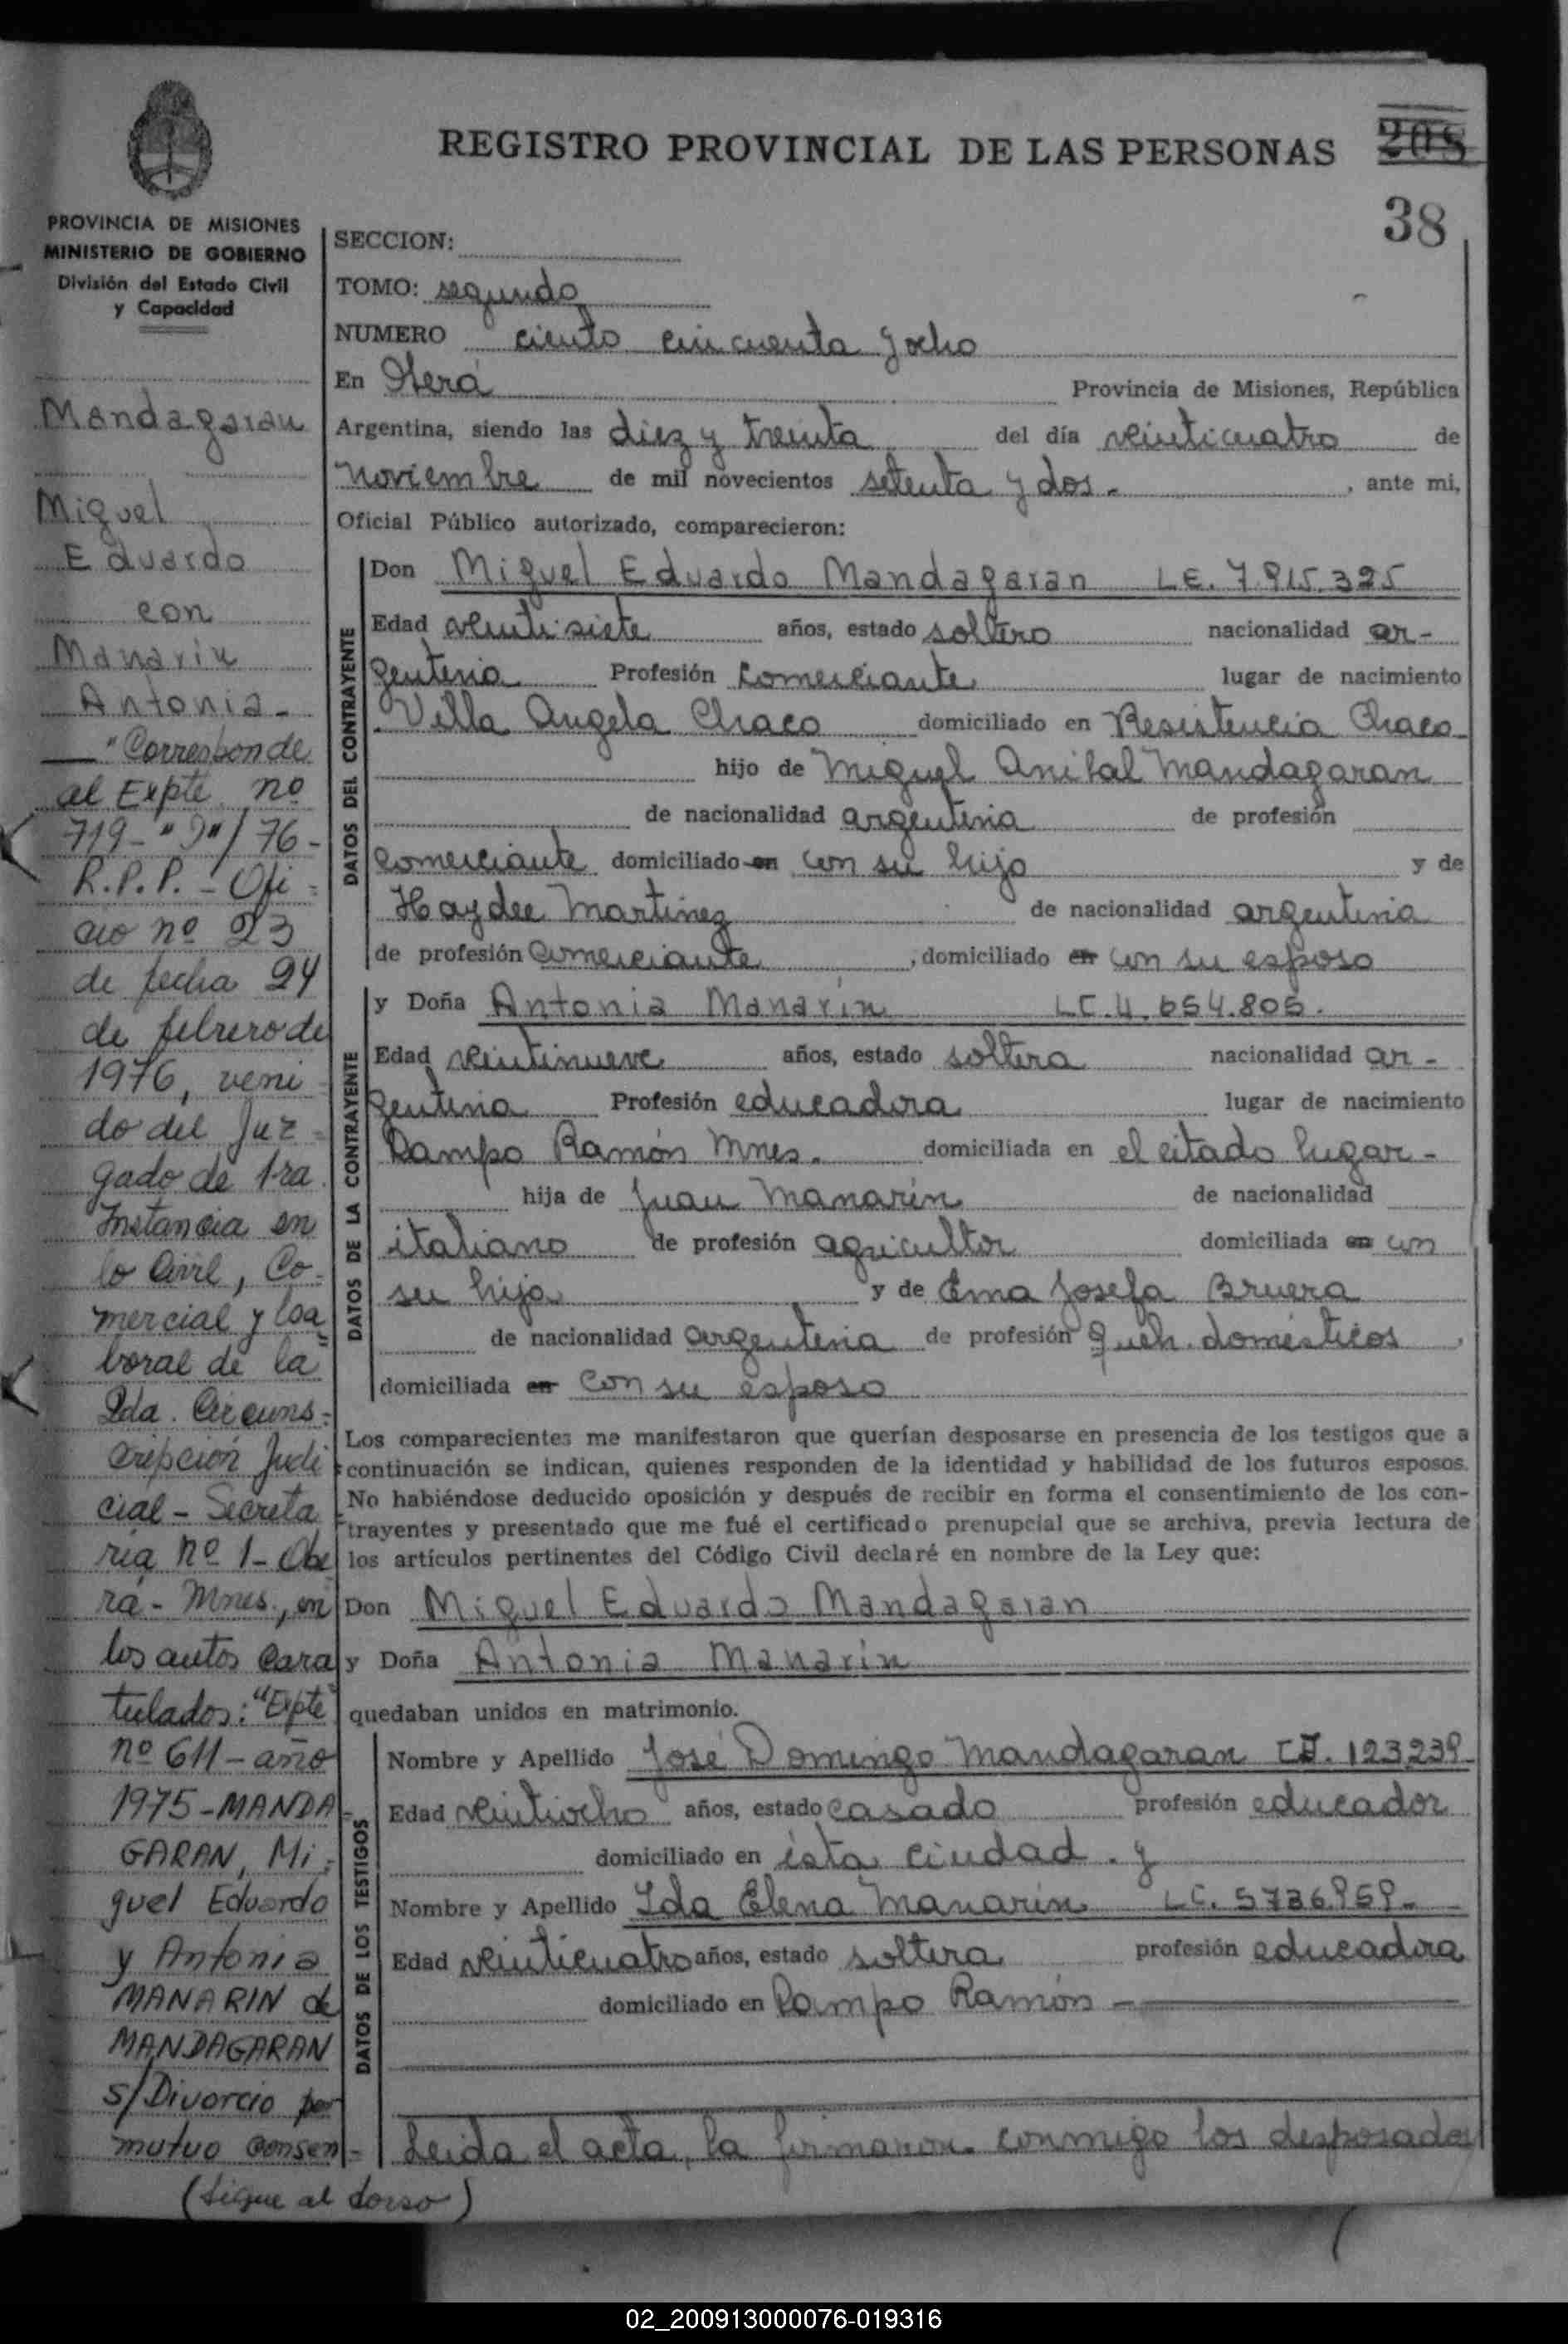 REGISTRO PROVINCIAL DE LAS PERSONAS
208
38
PROVINCIA DE MISIONES
MINISTERIO DE GOBIERNO
División del Estado Civil
y Capacidad
Mandagaran
Miguel
Eduardo
con
Manarin
Antonia-
"Corresponde
al Expte nº
719-"J"/76-
R.P.P.-Ofi-
cio nº 23
de fecha 24
de febrero de
1976, veni-
do del Juz-
gado de 1ra.
Instancia en
lo Civil, Co-
mercial y Laa
boral de la
2da. Circuns-
cripción Judi-
cial-Secreta
ría Nº 1-Obe
rá-Mnes, en
los autos cara
tulados: "Expte
nº 611-año
1975-MANDA-
GARAN, Mi-
guel Eduardo
y Antonia
MANARIN de
MANDAGARAN
s/Divorcio por
mutuo consen-
(Sigue al dorso)
SECCION:
TOMO: segundo
NUMERO ciento cincuenta y ocho
En Oberá Provincia de Misiones, República
Argentina, siendo las diez y treinta del día veinticuatro de
noviembre de mil novecientos setenta y dos.- , ante mi,
Oficial Público autorizado, comparecieron:
DATOS DEL CONTRAYENTE
Don Miguel Eduardo Mandagaran LE. 7.915.325
Edad veintisiete años, estado soltero nacionalidad ar-
gentina Profesión comerciante lugar de nacimiento
Villa Angela Chaco domiciliado en Resistencia Chaco
hijo de Miguel Anibal Mandagaran
de nacionalidad argentina de profesión
comerciante domiciliado en con su hijo y de
Haydee Martinez de nacionalidad argentina
de profesión comerciante , domiciliado en con su esposo
DATOS DE LA CONTRAYENTE
y Doña Antonia Manarin LC. 4.654.805.
Edad veintinueve años, estado soltera nacionalidad ar-
gentina Profesión educadora lugar de nacimiento
Campo Ramón Mnes. domiciliada en el citado lugar-
hija de Juan Manarin de nacionalidad
italiano de profesión agricultor domiciliada en con
su hija y de Ema Josefa Bruera
de nacionalidad argentina de profesión queh. domésticos ,
domiciliada en con su esposo
Los comparecientes me manifestaron que querían desposarse en presencia de los testigos que a
continuación se indican, quienes responden de la identidad y habilidad de los futuros esposos.
No habiéndose deducido oposición y después de recibir en forma el consentimiento de los con-
trayentes y presentado que me fué el certificado prenupcial que se archiva, previa lectura de
los artículos pertinentes del Código Civil declaré en nombre de la Ley que:
Don Miguel Eduardo Mandagaran
y Doña Antonia Manarin
quedaban unidos en matrimonio.
DATOS DE LOS TESTIGOS
Nombre y Apellido José Domingo Mandagaran CI. 123239
Edad veintiocho años, estado casado profesión educador
domiciliado en ésta ciudad. y
Nombre y Apellido Ida Elena Manarin LC. 5736959-
Edad veinticuatro años, estado soltera profesión educadora
domiciliado en Campo Ramón-
Leida el acta, la firmaron conmigo los desposados
02_200913000076-019316